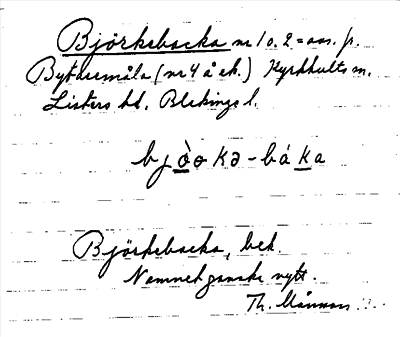 Björkebacka nr 1 o. 2 = avs. p.
Bytaremåla (nr 4 å ek.) Kyrkhults sn.
Listers hd. Blekinge l.
bjòɵkə-báka
Björkebacka, bek.
Namnet ganska nytt.
Th. Månsson